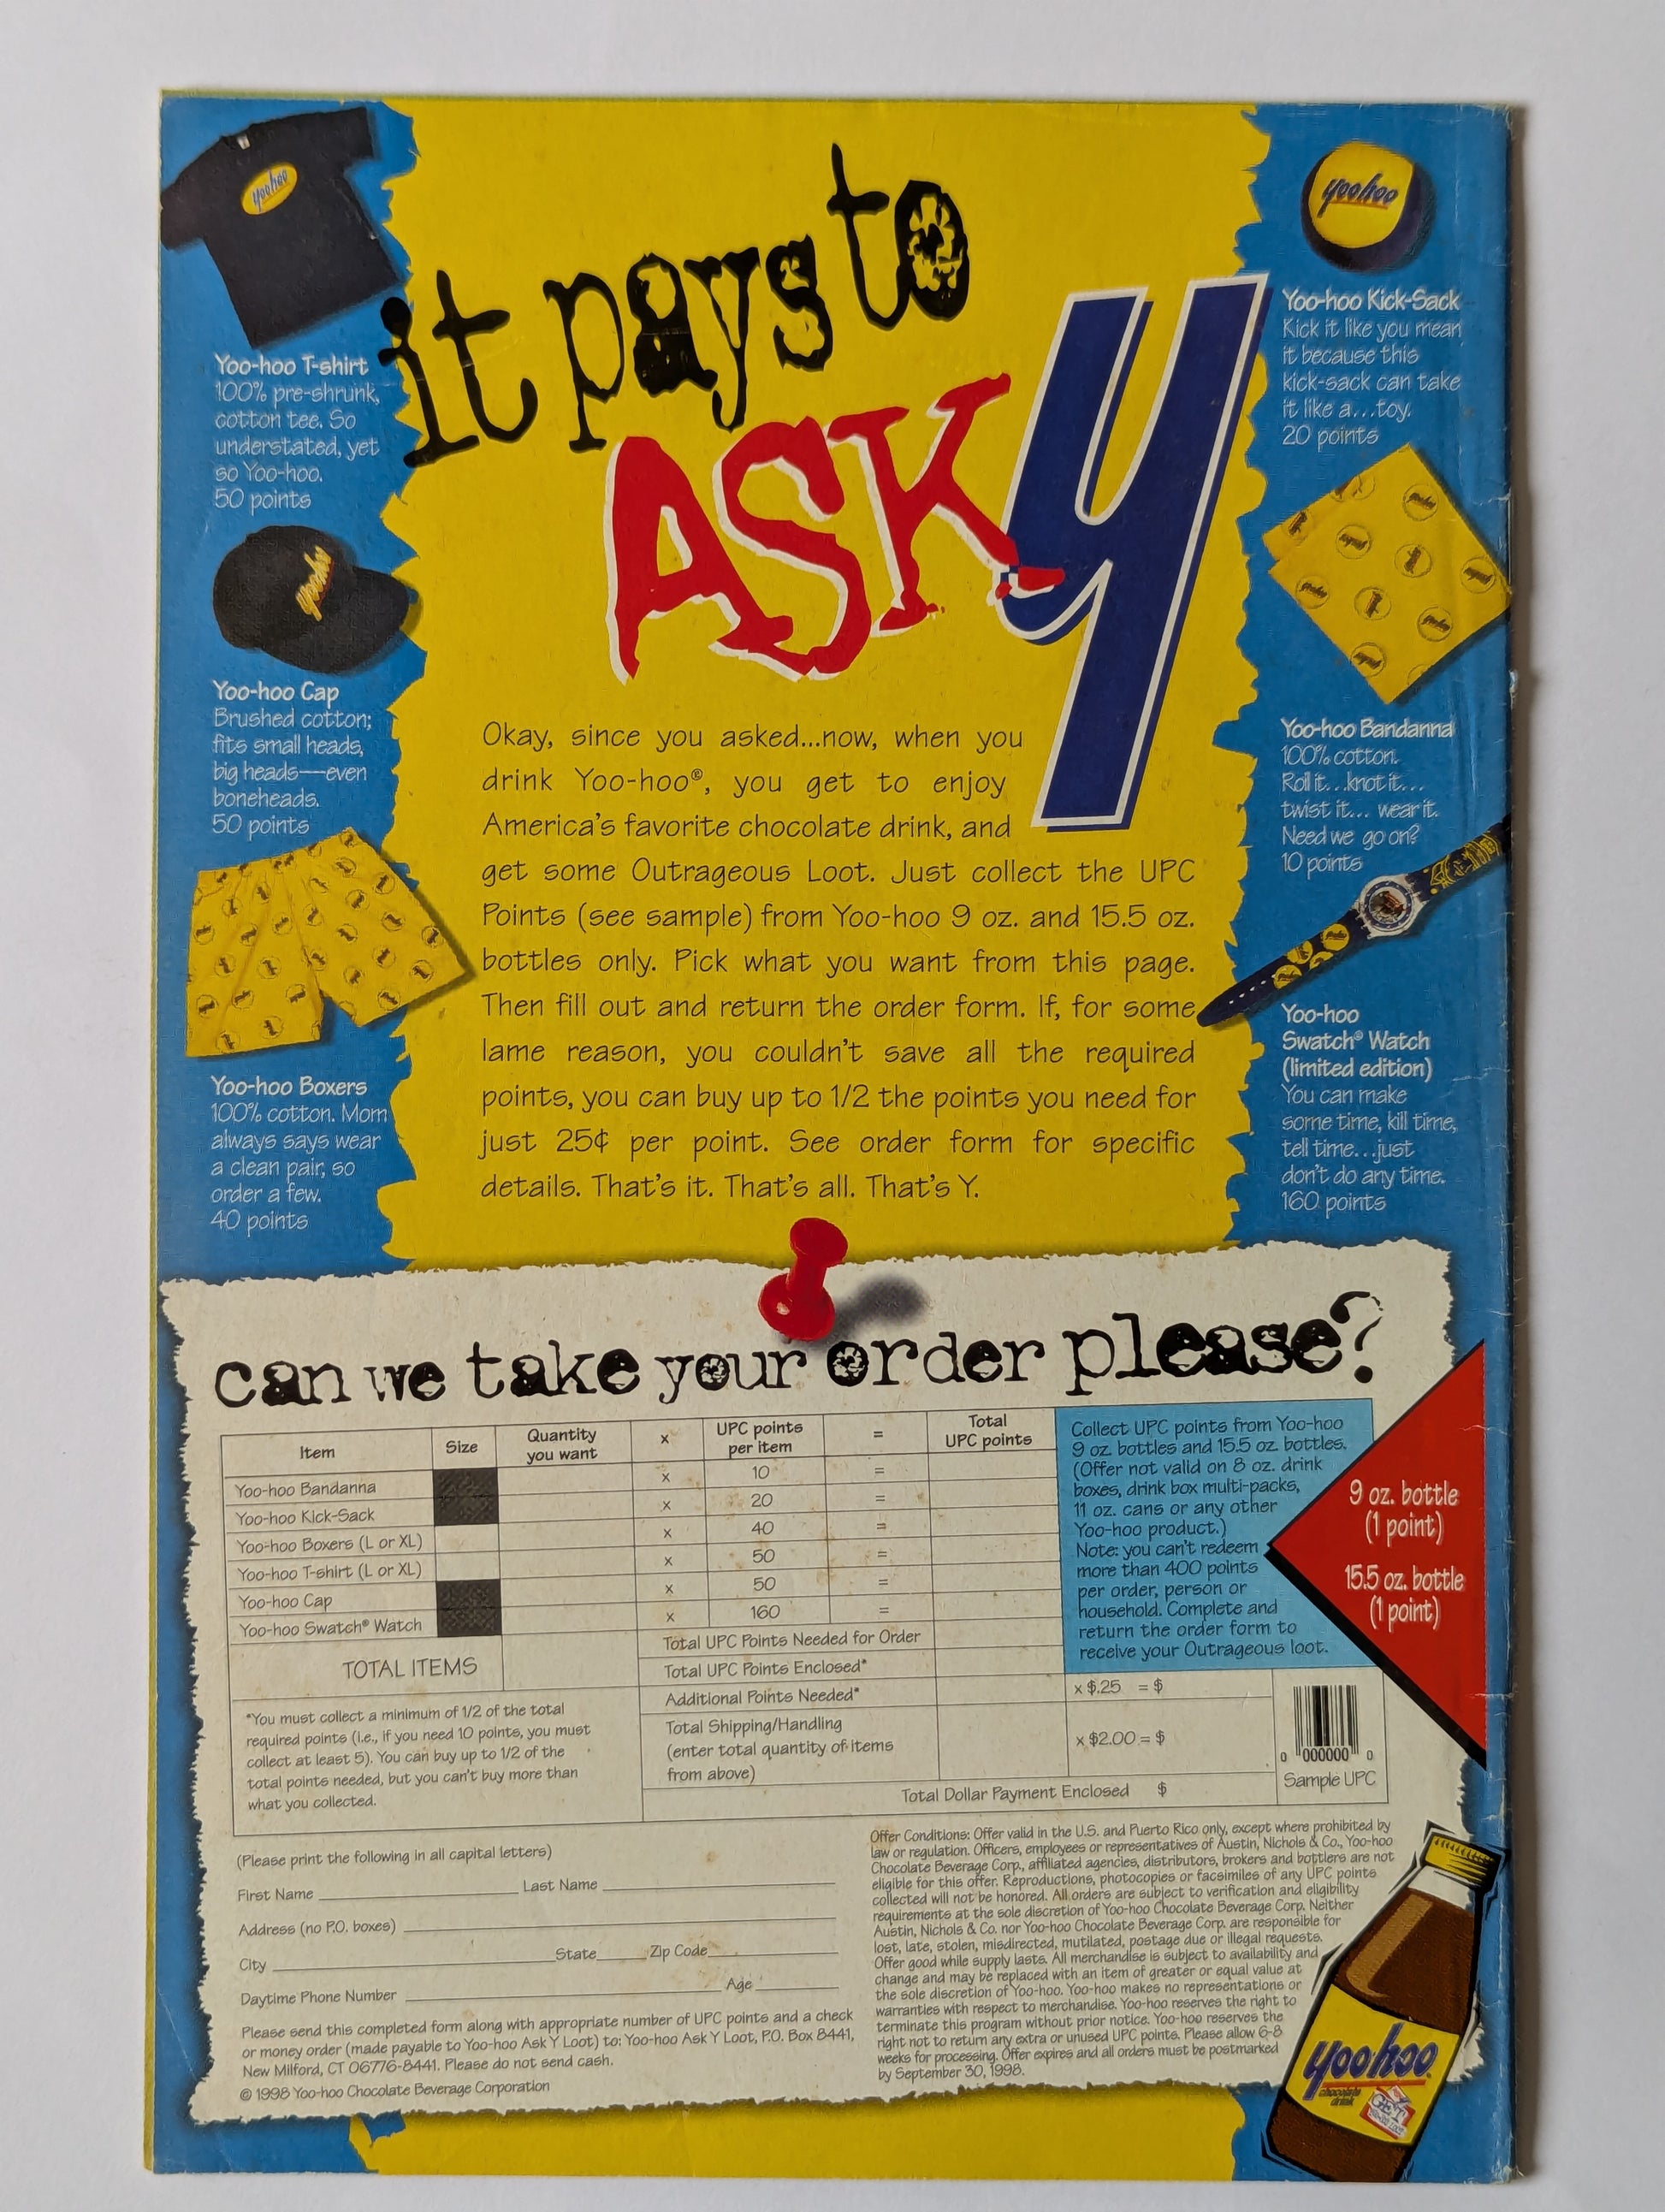 it pays to
ASK Y
yoohoo
Yoo-hoo T-shirt
100% pre-shrunk,
cotton tee. So
understated, yet
so Yoo-hoo.
50 points
yoohoo
Yoo-hoo Cap
Brushed cotton;
fits small heads,
big heads—even
boneheads.
50 points
Yoo-hoo Boxers
100% cotton. Mom
always says wear
a clean pair, so
order a few.
40 points
Okay, since you asked...now, when you
drink Yoo-hoo®, you get to enjoy
America's favorite chocolate drink, and
get some Outrageous Loot. Just collect the UPC
Points (see sample) from Yoo-hoo 9 oz. and 15.5 oz.
bottles only. Pick what you want from this page.
Then fill out and return the order form. If, for some
lame reason, you couldn't save all the required
points, you can buy up to 1/2 the points you need for
just 25¢ per point. See order form for specific
details. That's it. That's all. That's Y.
yoohoo
Yoo-hoo Kick-Sack
Kick it like you mean
it because this
kick-sack can take
it like a...toy.
20 points
Yoo-hoo Bandanna
100% cotton.
Roll it...knot it...
twist it... wear it.
Need we go on?
10 points
Yoo-hoo
Swatch® Watch
(limited edition)
You can make
some time, kill time,
tell time...just
don't do any time.
160 points
can we take your order please?
Item Size Quantity you want x UPC points per item = Total UPC points
Yoo-hoo Bandanna x 10 =
Yoo-hoo Kick-Sack x 20 =
Yoo-hoo Boxers (L or XL) x 40 =
Yoo-hoo T-shirt (L or XL) x 50 =
Yoo-hoo Cap x 50 =
Yoo-hoo Swatch® Watch x 160 =
TOTAL ITEMS
Total UPC Points Needed for Order
Total UPC Points Enclosed*
Additional Points Needed* x $.25 = $
Total Shipping/Handling
(enter total quantity of items
from above) x $2.00 = $
Total Dollar Payment Enclosed $
*You must collect a minimum of 1/2 of the total
required points (i.e., if you need 10 points, you must
collect at least 5). You can buy up to 1/2 of the
total points needed, but you can't buy more than
what you collected.
Collect UPC points from Yoo-hoo
9 oz. bottles and 15.5 oz. bottles.
(Offer not valid on 8 oz. drink
boxes, drink box multi-packs,
11 oz. cans or any other
Yoo-hoo product.)
Note: you can't redeem
more than 400 points
per order, person or
household. Complete and
return the order form to
receive your Outrageous loot.
9 oz. bottle
(1 point)
15.5 oz. bottle
(1 point)
0 000000 0
Sample UPC
(Please print the following in all capital letters)
First Name Last Name
Address (no P.O. boxes)
City State Zip Code
Daytime Phone Number Age
Please send this completed form along with appropriate number of UPC points and a check
or money order (made payable to Yoo-hoo Ask Y Loot) to: Yoo-hoo Ask Y Loot, P.O. Box 8441,
New Milford, CT 06776-8441. Please do not send cash.
© 1998 Yoo-hoo Chocolate Beverage Corporation
Offer Conditions: Offer valid in the U.S. and Puerto Rico only, except where prohibited by
law or regulation. Officers, employees or representatives of Austin, Nichols & Co., Yoo-hoo
Chocolate Beverage Corp., affiliated agencies, distributors, brokers and bottlers are not
eligible for this offer. Reproductions, photocopies or facsimiles of any UPC points
collected will not be honored. All orders are subject to verification and eligibility
requirements at the sole discretion of Yoo-hoo Chocolate Beverage Corp. Neither
Austin, Nichols & Co. nor Yoo-hoo Chocolate Beverage Corp. are responsible for
lost, late, stolen, misdirected, mutilated, postage due or illegal requests.
Offer good while supply lasts. All merchandise is subject to availability and
change and may be replaced with an item of greater or equal value at
the sole discretion of Yoo-hoo. Yoo-hoo makes no representations or
warranties with respect to merchandise. Yoo-hoo reserves the right to
terminate this program without prior notice. Yoo-hoo reserves the
right not to return any extra or unused UPC points. Please allow 6-8
weeks for processing. Offer expires and all orders must be postmarked
by September 30, 1998.
yoohoo
chocolate
drink
GET